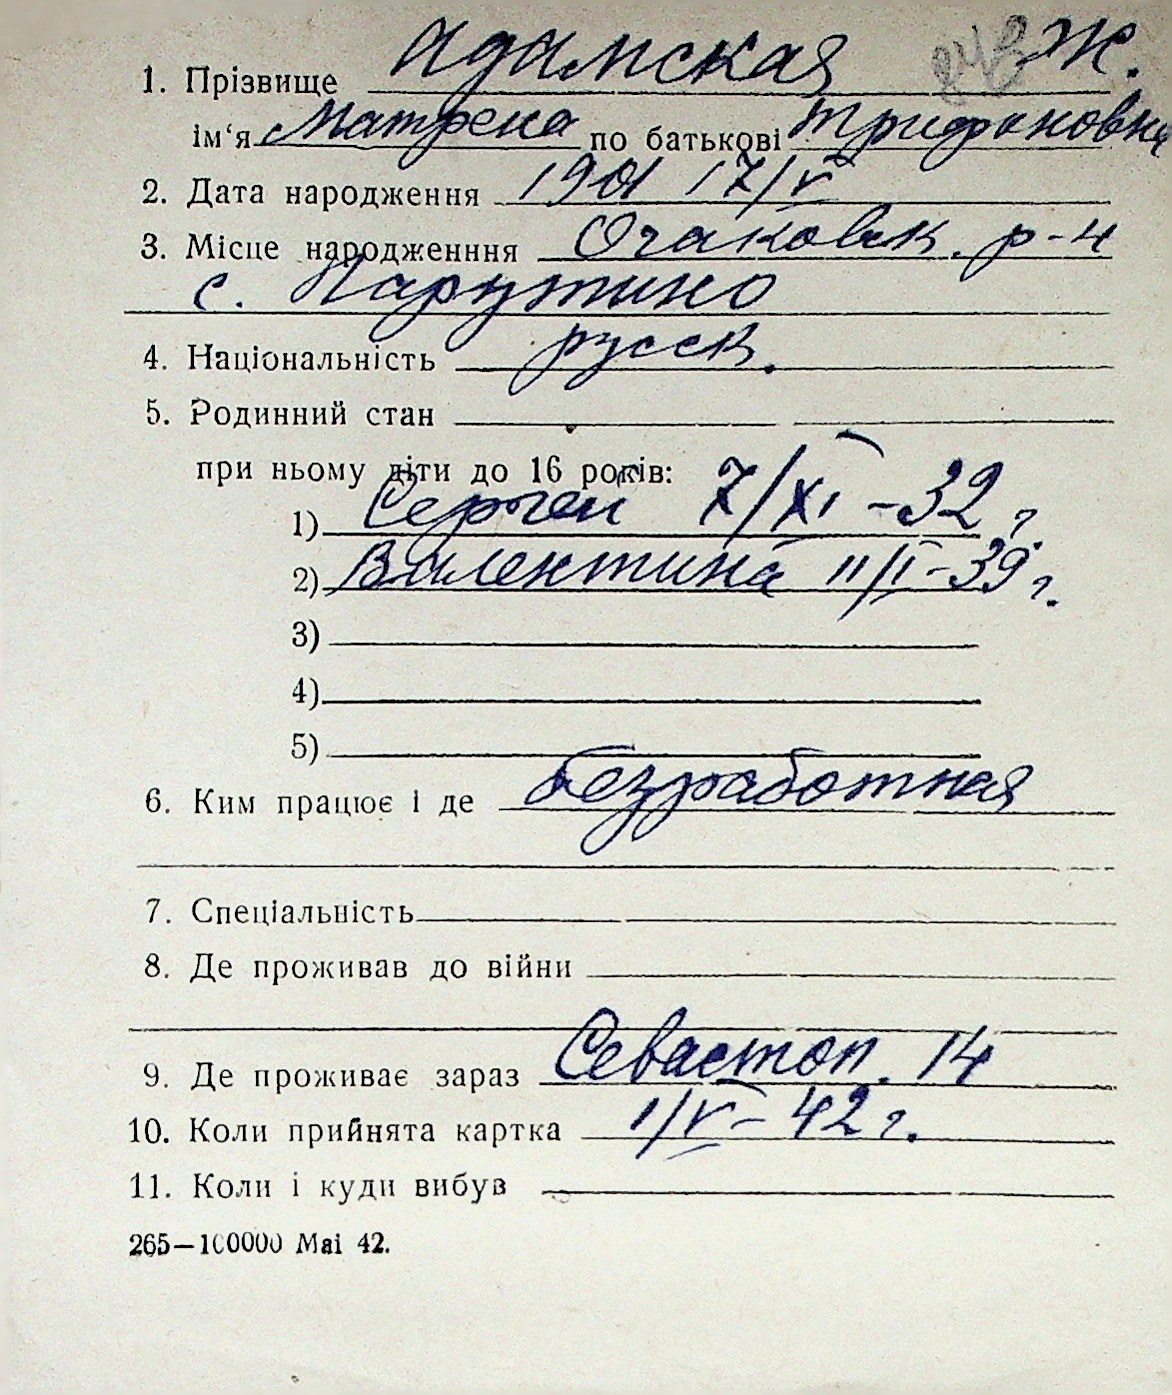 1. Прізвище Адамская 243 Ж.
ім‘я Матрена по батькові Трифоновна
2. Дата народження 1901 17/V
3. Місце народженння Очаковск. р-н
с. Парутино
4. Національність русск.
5. Родинний стан
при ньому діти до 16 років:
1) Сергей 7/XI - 32 г.
2) Валентина 11/II - 39 г.
3)
4)
5)
6. Ким працює і де безработная
7. Спеціальність
8. Де проживав до війни
9. Де проживає зараз Севастоп. 14
10. Коли прийнята картка 1/V - 42 г.
11. Коли і куди вибув
265—100000 Mai 42.